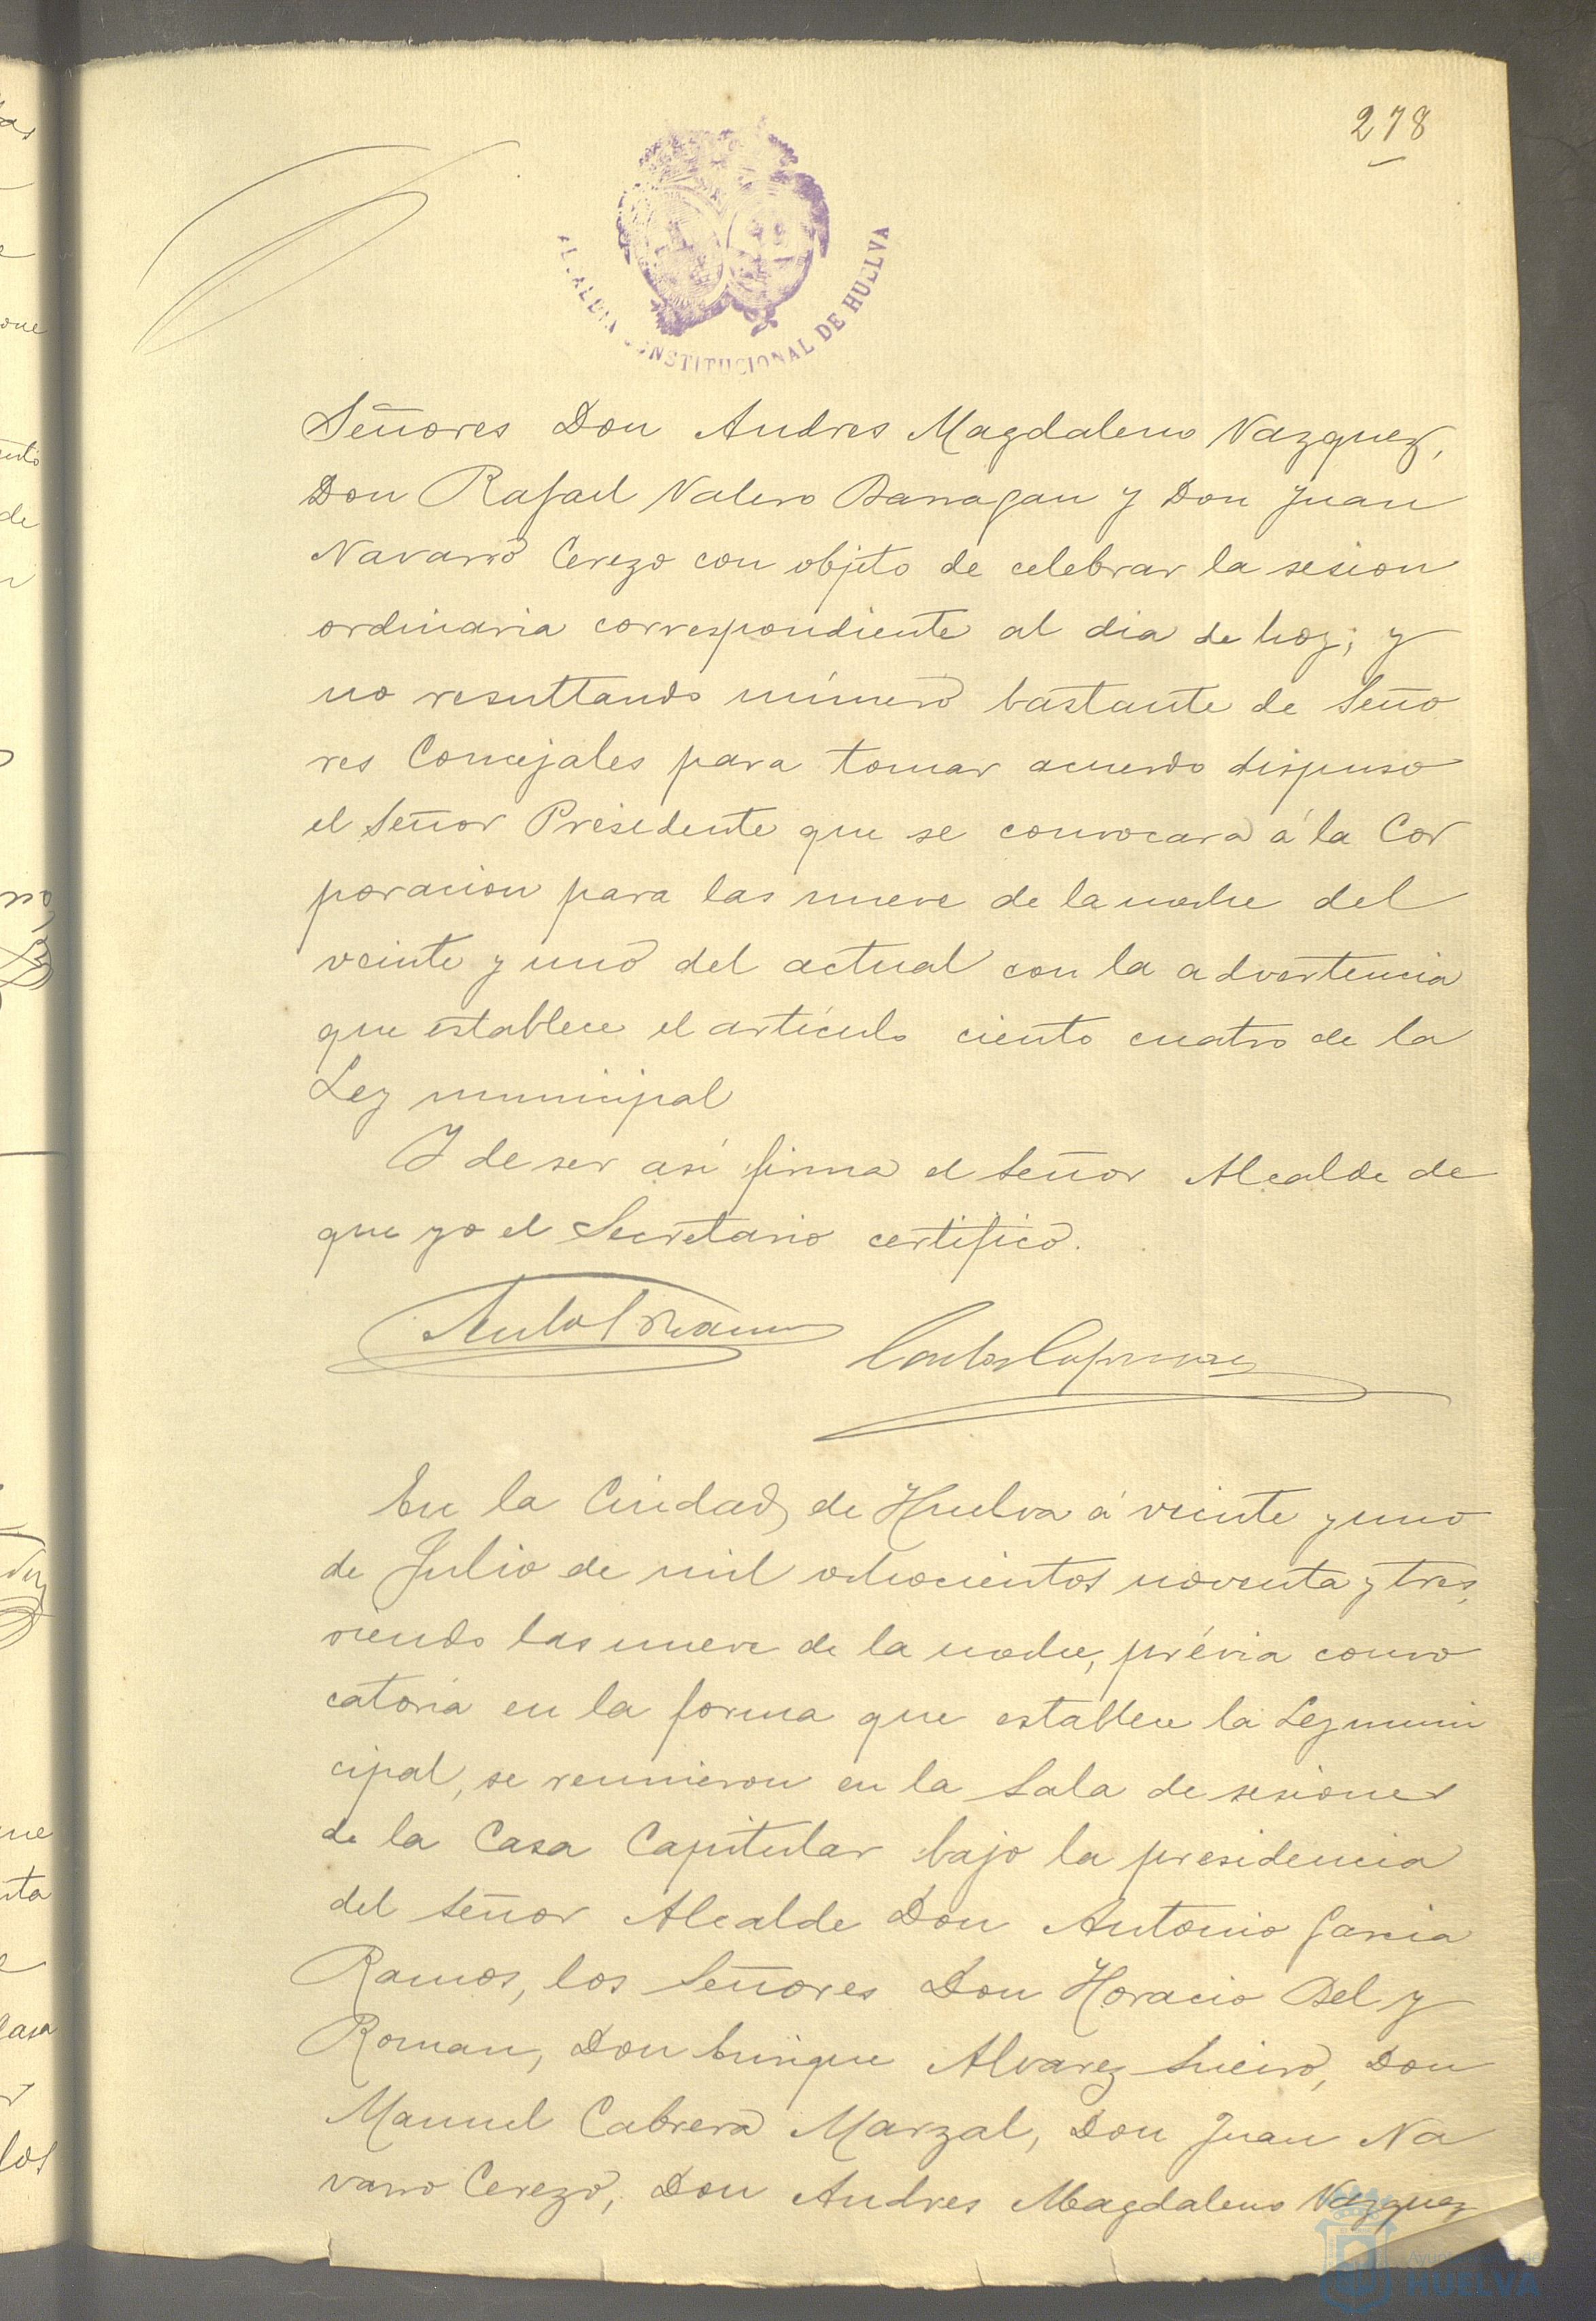 278
ALCALDIA CONSTITUCIONAL DE HUELVA
Señores Don Andres Magdaleno Vazquez,
Don Rafael Valero Barragan y Don Juan
Navarro Cerezo con objeto de celebrar la sesion
ordinaria correspondiente al dia de hoy; y
no resultando número bastante de Seño
res Concejales para tomar acuerdo dispuso
el Señor Presidente que se convocara á la Cor
poracion para las nueve de la noche del
veinte y uno del actual con la advertencia
que establece el artículo ciento cuatro de la
Ley municipal
Y de ser así firma el Señor Alcalde de
que yo el Secretario certifico.
En la Ciudad de Huelva á veinte y uno
de Julio de mil ochocientos noventa y tres,
siendo las nueve de la noche, prévia convo
catoria en la forma que establece la Ley muni
cipal, se reunieron en la Sala de sesiones
de la Casa Capitular bajo la presidencia
del Señor Alcalde Don Antonio Garcia
Ramos, los Señores Don Horacio Bel y
Roman, Don Enrique Alvarez Sueiro, Don
Manuel Cabrera Marzal, Don Juan Na
varro Cerezo, Don Andres Magdaleno Vazquez
HUELVA